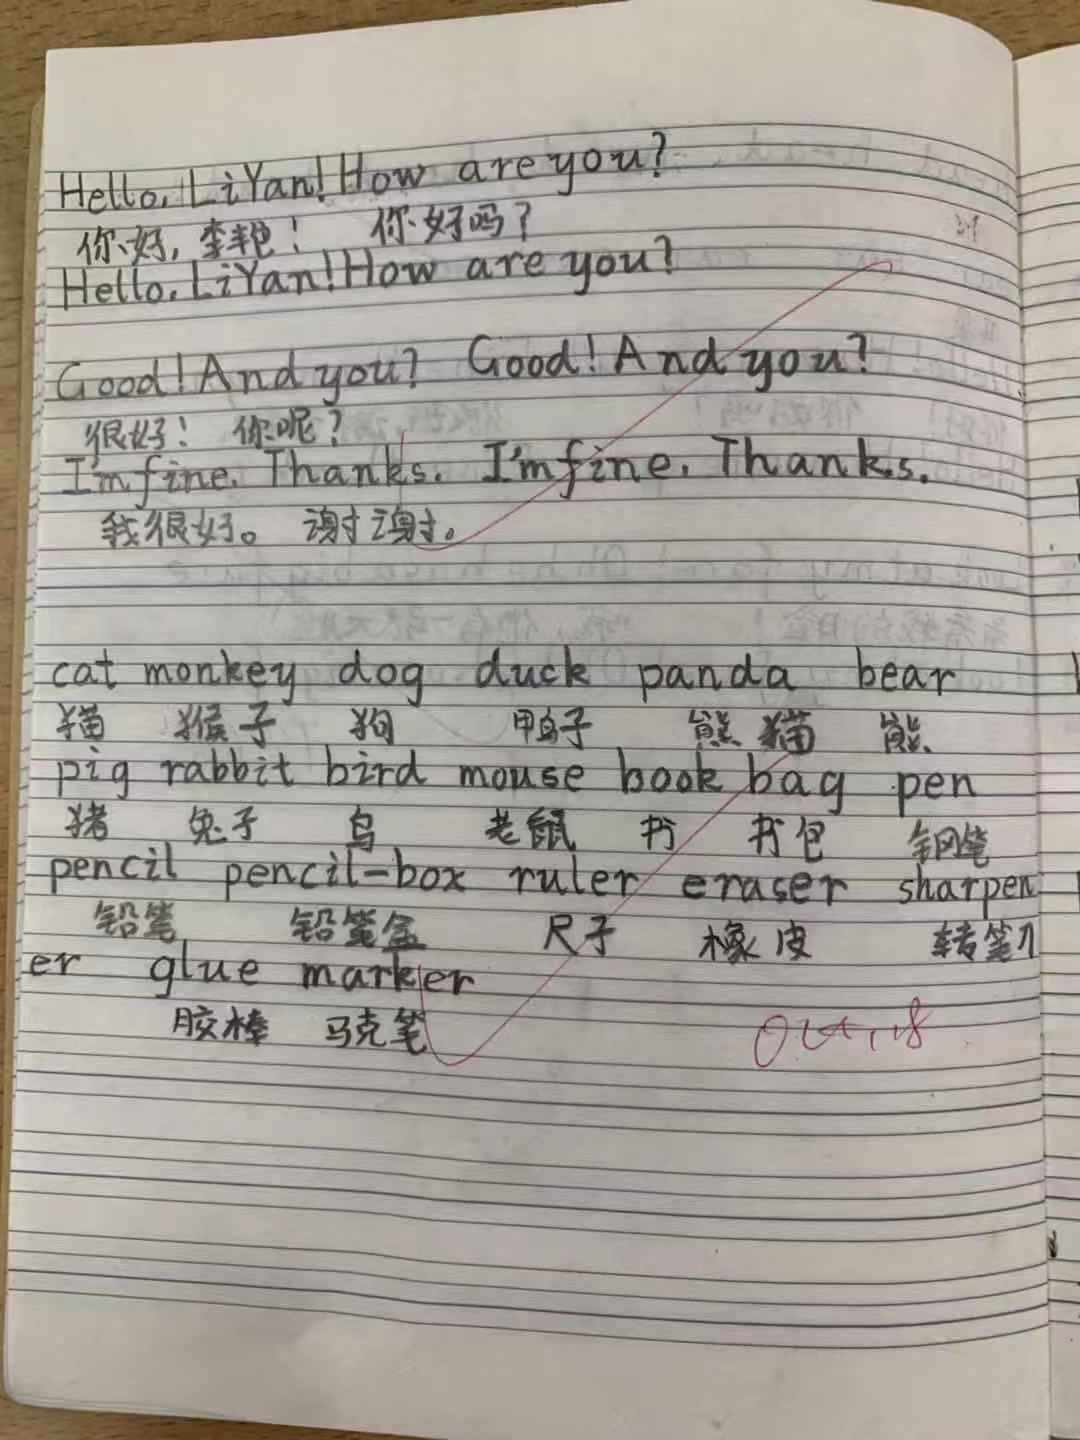 Hello, LiYan! How are you?
你好，李艳！ 你好吗？
Hello, LiYan! How are you?
Good! And you? Good! And you?
很好！ 你呢？
I'm fine. Thanks. I'm fine. Thanks.
我很好。 谢谢。
cat monkey dog duck panda bear
猫 猴子 狗 鸭子 熊猫 熊
pig rabbit bird mouse book bag pen
猪 兔子 鸟 老鼠 书 书包 钢笔
pencil pencil-box ruler eraser sharpen
铅笔 铅笔盒 尺子 橡皮 转笔刀
er glue marker
胶棒 马克笔
Oct, 18